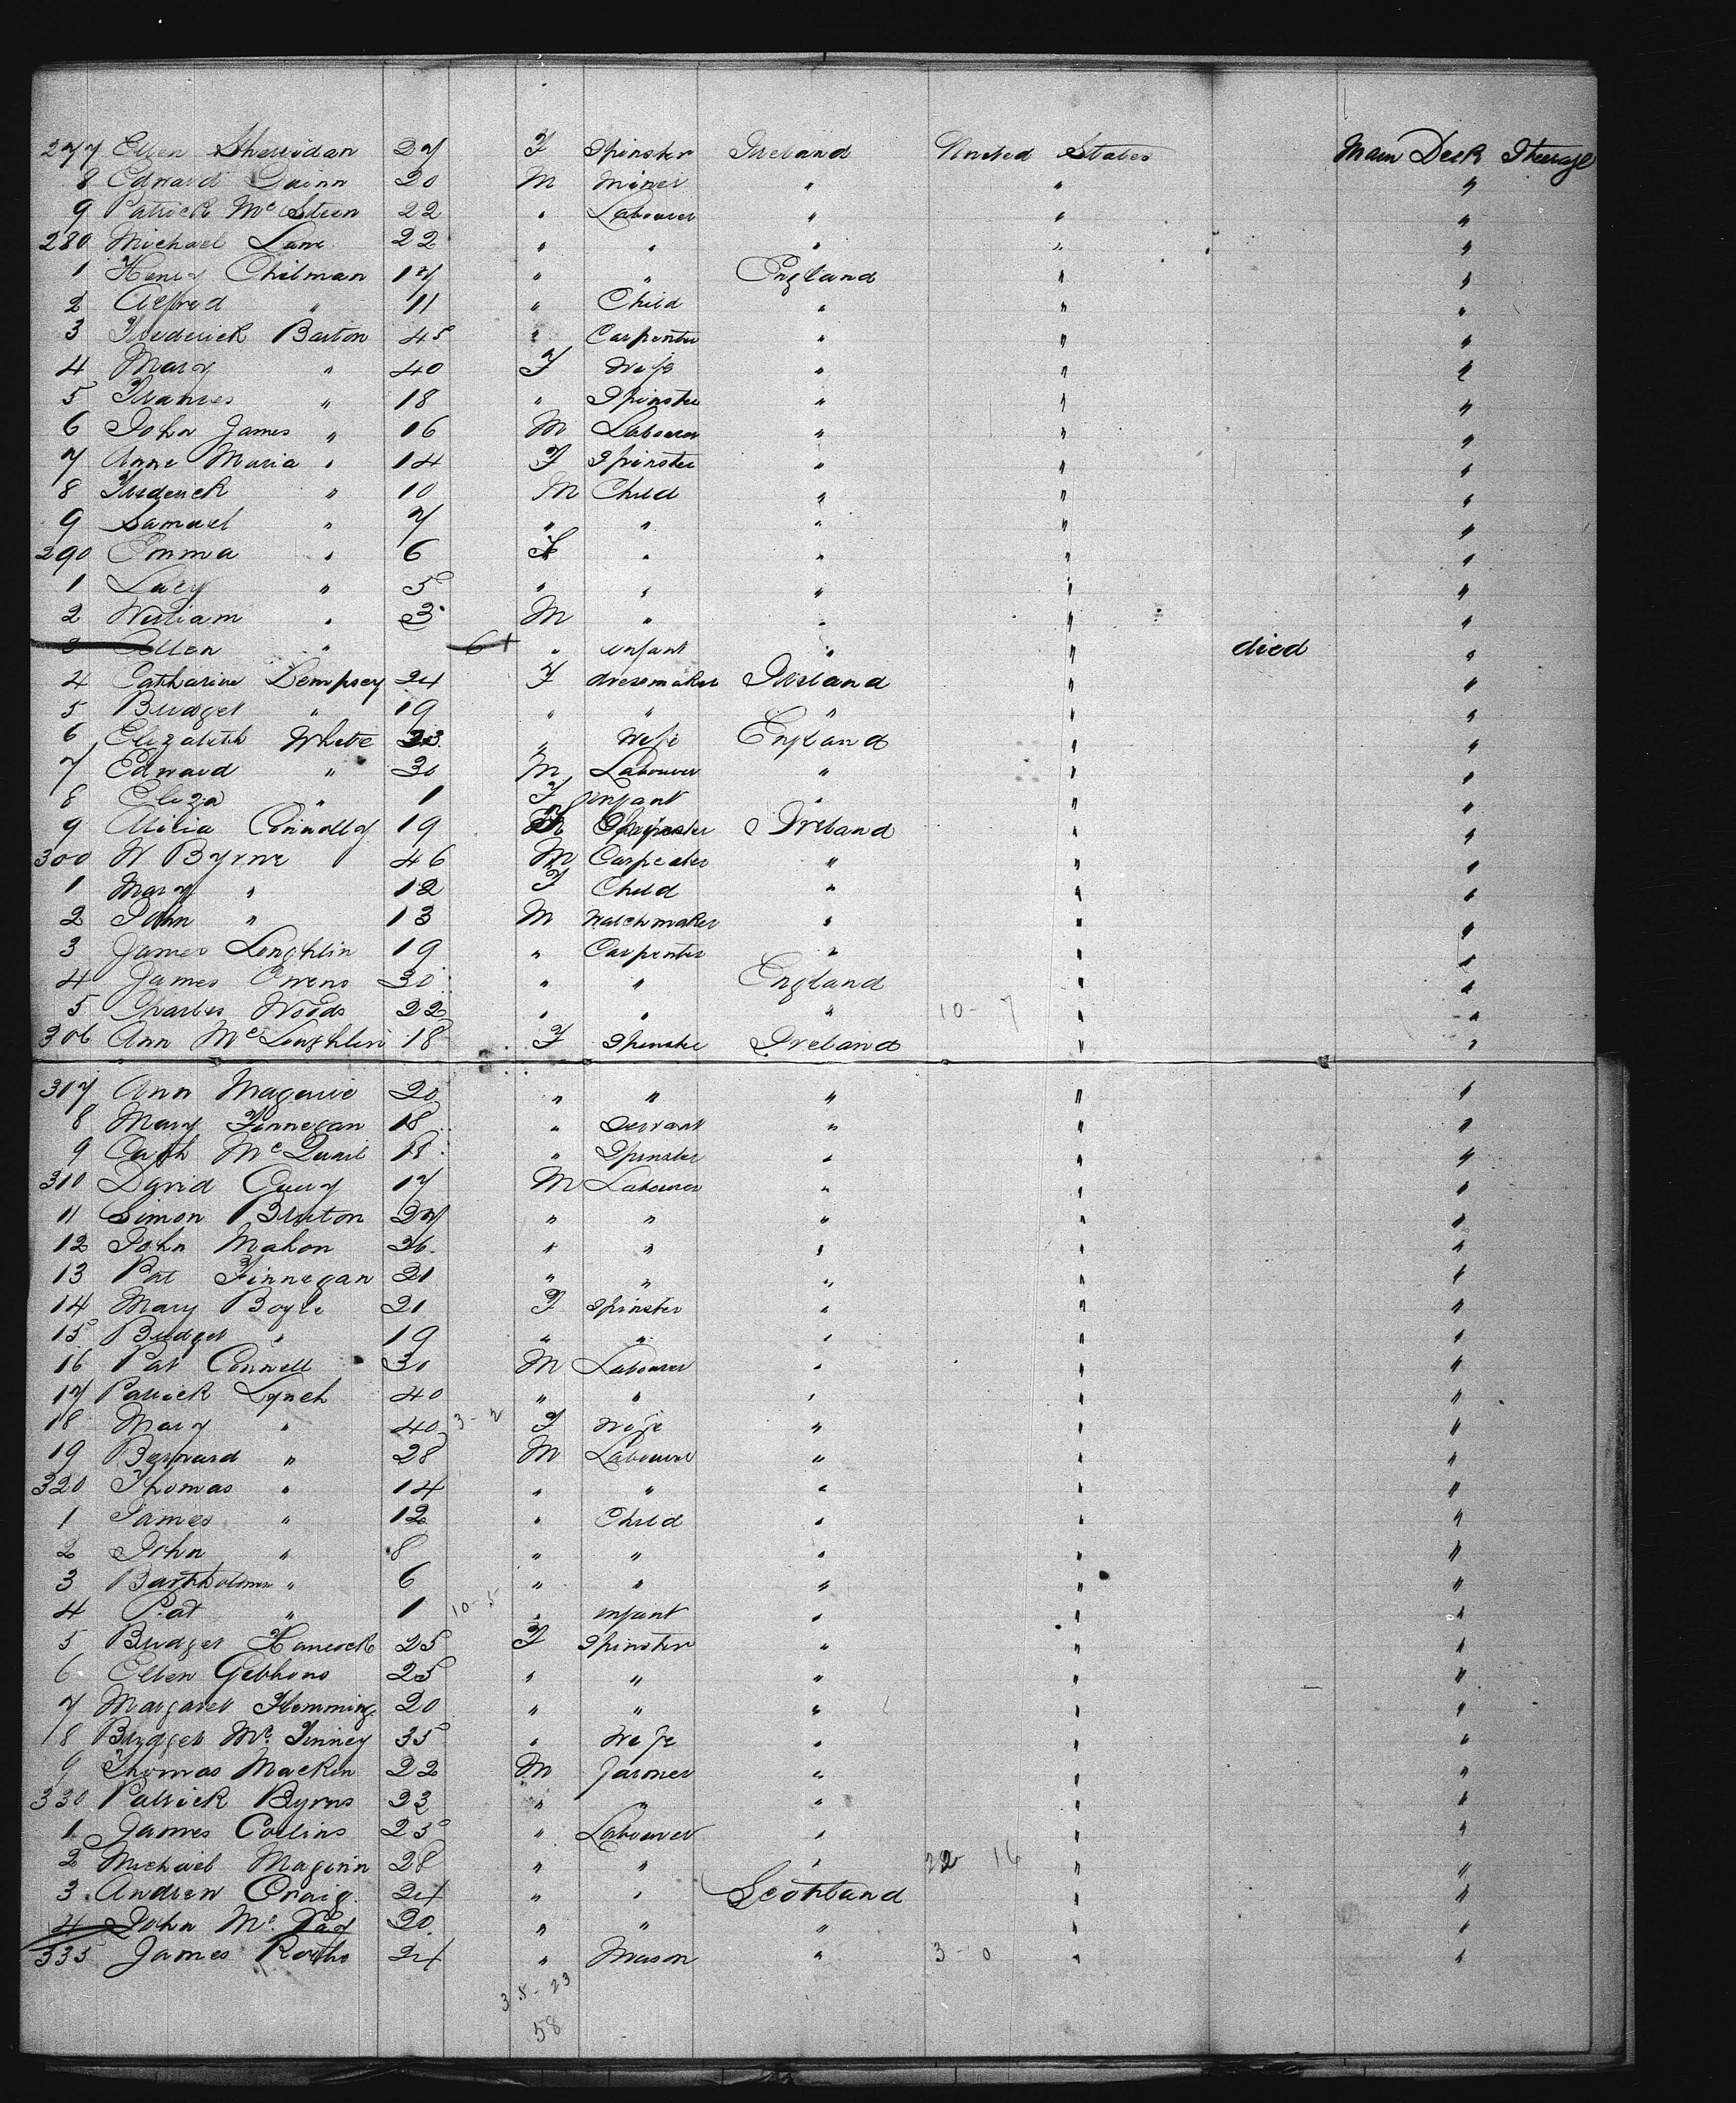 277 Ellen Sheridan 27 F Spinster Ireland United States Main Deck Steerage
8 Edward Quinn 20 M Miner " " "
9 Patrick Mc Steen 22 " Labourer " " "
280 Michael Lane 22 " " " " "
1 Henry Chilman 17 " " England " "
2 Alfred " 11 " Child " " "
3 Frederick Barton 45 " Carpenter " " "
4 Mary " 40 F Wife " " "
5 Frances " 18 " Spinster " " "
6 John James " 16 M Labourer " " "
7 Anne Maria " 14 F Spinster " " "
8 Frederick " 10 M Child " " "
9 Samuel " 7 " " " " "
290 Emma " 6 F " " " "
1 Lucy " 5 " " " " "
2 William " 3 M " " " "
3 Allen " 6 " infant " " died "
4 Catharine Dempsey 24 F dressmaker Ireland " "
5 Bridget " 19 " " " " "
6 Elizabeth White 23 " Wife England " "
7 Edward " 30 M Labourer " " "
8 Eliza " 1 F infant " " "
9 Alicia Connolly 19 F Spinster Ireland " "
300 W Byrne 46 M Carpenter " " "
1 Mary " 12 F Child " " "
2 John " 13 M Watchmaker " " "
3 James Loughlin 19 " Carpenter " " "
4 James Owens 30 " " England " "
5 Charles Woods 22 " " " 10 - 7 " "
306 Ann Mc Loughlin 18 F Spinster Ireland " "
317 Ann Maguire 20 " " " " "
8 Mary Finnegan 18 " Servant " " "
9 Cath Mc Quail 18 " Spinster " " "
310 David Curry 17 M Labourer " " "
11 Simon Bruton 27 " " " " "
12 John Mahon 26 " " " " "
13 Pat Finnegan 21 " " " " "
14 Mary Boyle 21 F Spinster " " "
15 Bridget " 19 " " " " "
16 Pat Connell 30 M Labourer " " "
17 Patrick Lynch 40 " " " " "
18 Mary " 40 3 - 2 F Wife " " "
19 Bernard " 28 M Labourer " " "
320 Thomas " 14 " " " " "
1 James " 12 " Child " " "
2 John " 8 " " " " "
3 Bartholomew " 6 " " " " "
4 Pat " 1 10 - 5 " infant " " "
5 Bridget Hancock 25 F Spinster " " "
6 Ellen Gibbons 25 " " " " "
7 Margaret Flemming 20 " " " " "
8 Bridget Mc Finney 35 " Wife " " "
9 Thomas Mackin 22 M Farmer " " "
330 Patrick Byrns 23 " " " " "
1 James Collins 25 " Labourer " " "
2 Michael Maginn 28 " " " 22 16 " "
3 Andrew Craig 24 " " Scotland " "
4 John Mc 20 " " " " "
335 James 24 " Mason " 3 - 0 " "
35 - 23
58